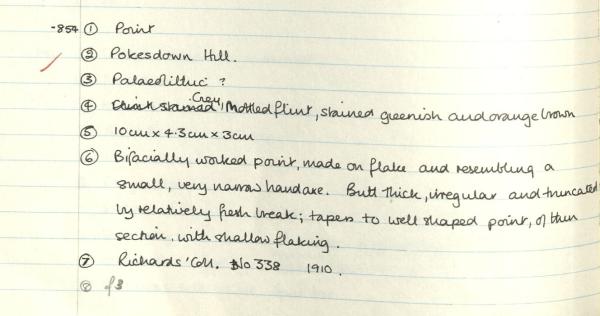 -854 ① Point
② Pokesdown Hill.
③ Palaeolithic ?
④ Grey, Mottled flint, stained greenish and orange brown
⑤ 10cm x 4.3cm x 3cm
⑥ Bifacially worked point, made on flake and resembling a
small, very narrow handaxe. Butt thick, irregular and truncated
by relatively fresh break; tapers to well shaped point, of thin
section, with shallow flaking.
⑦ Richards' Coll. No 338 1910.
⑧